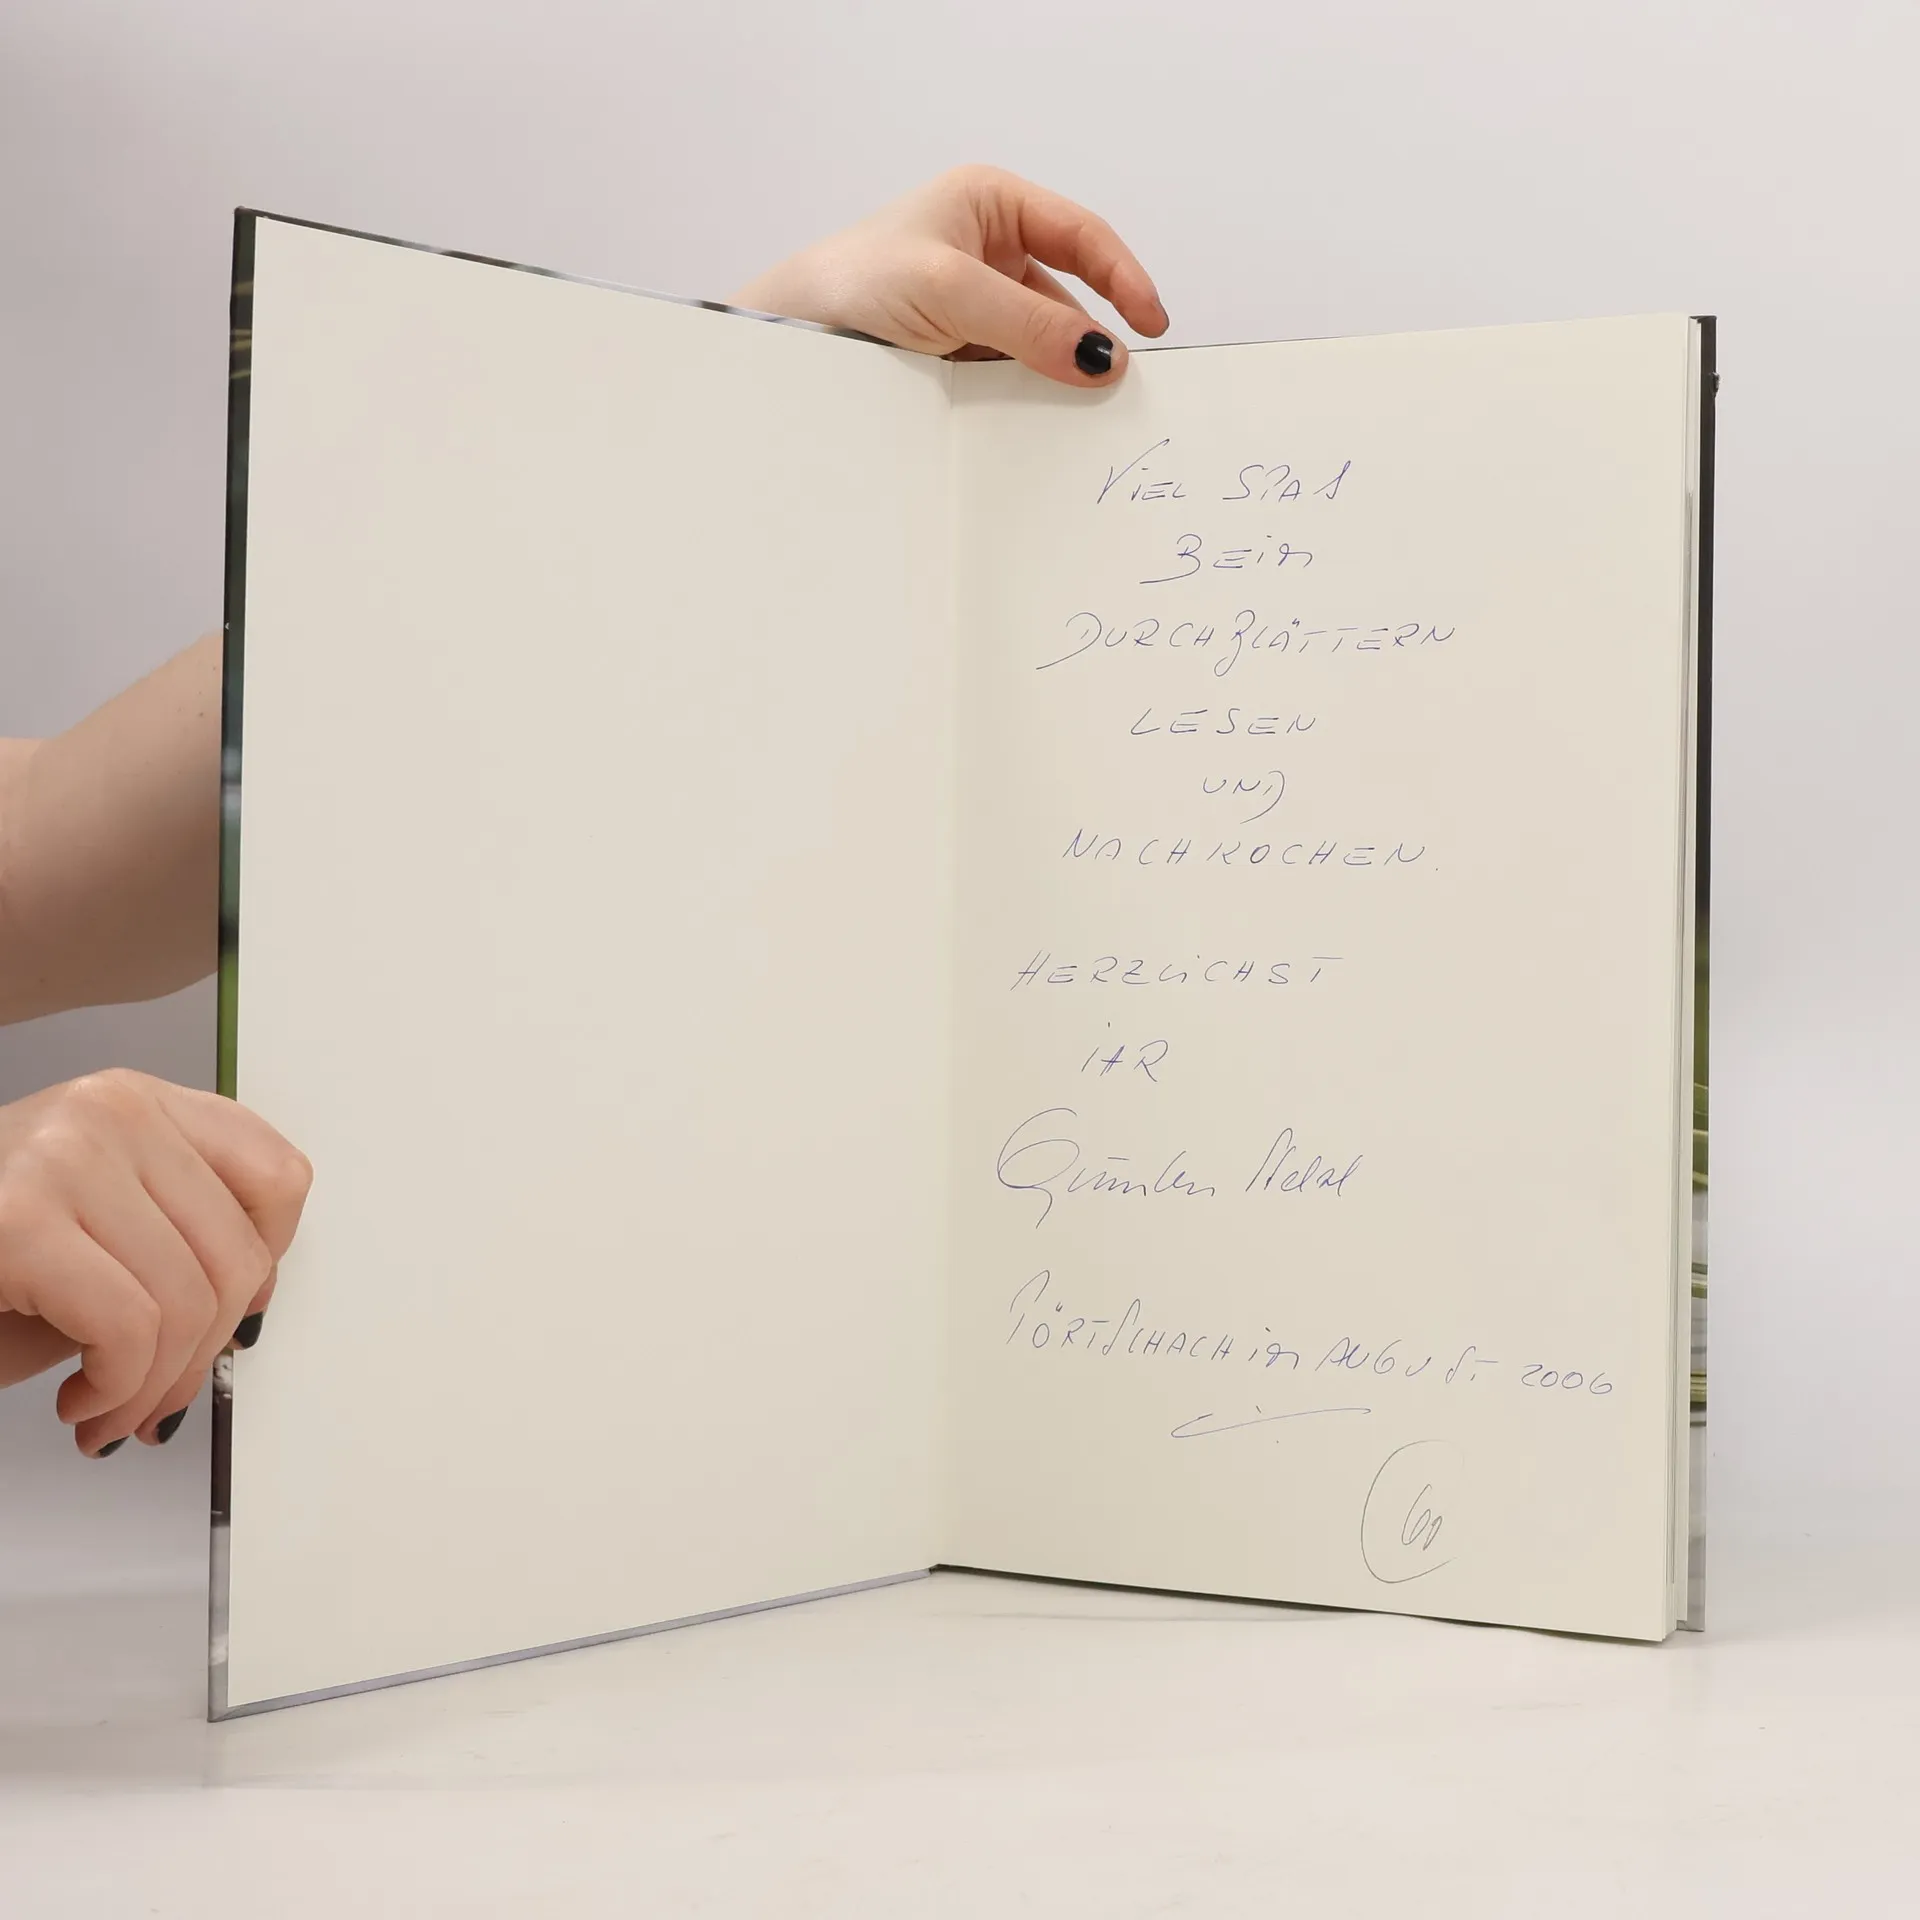 VIEL SPAS
BEIM
DURCHBLÄTTERN
LESEN
UND
NACHKOCHEN.
HERZLICHST
IHR
Günter
PÖRTSCHACH im AUGUST 2006